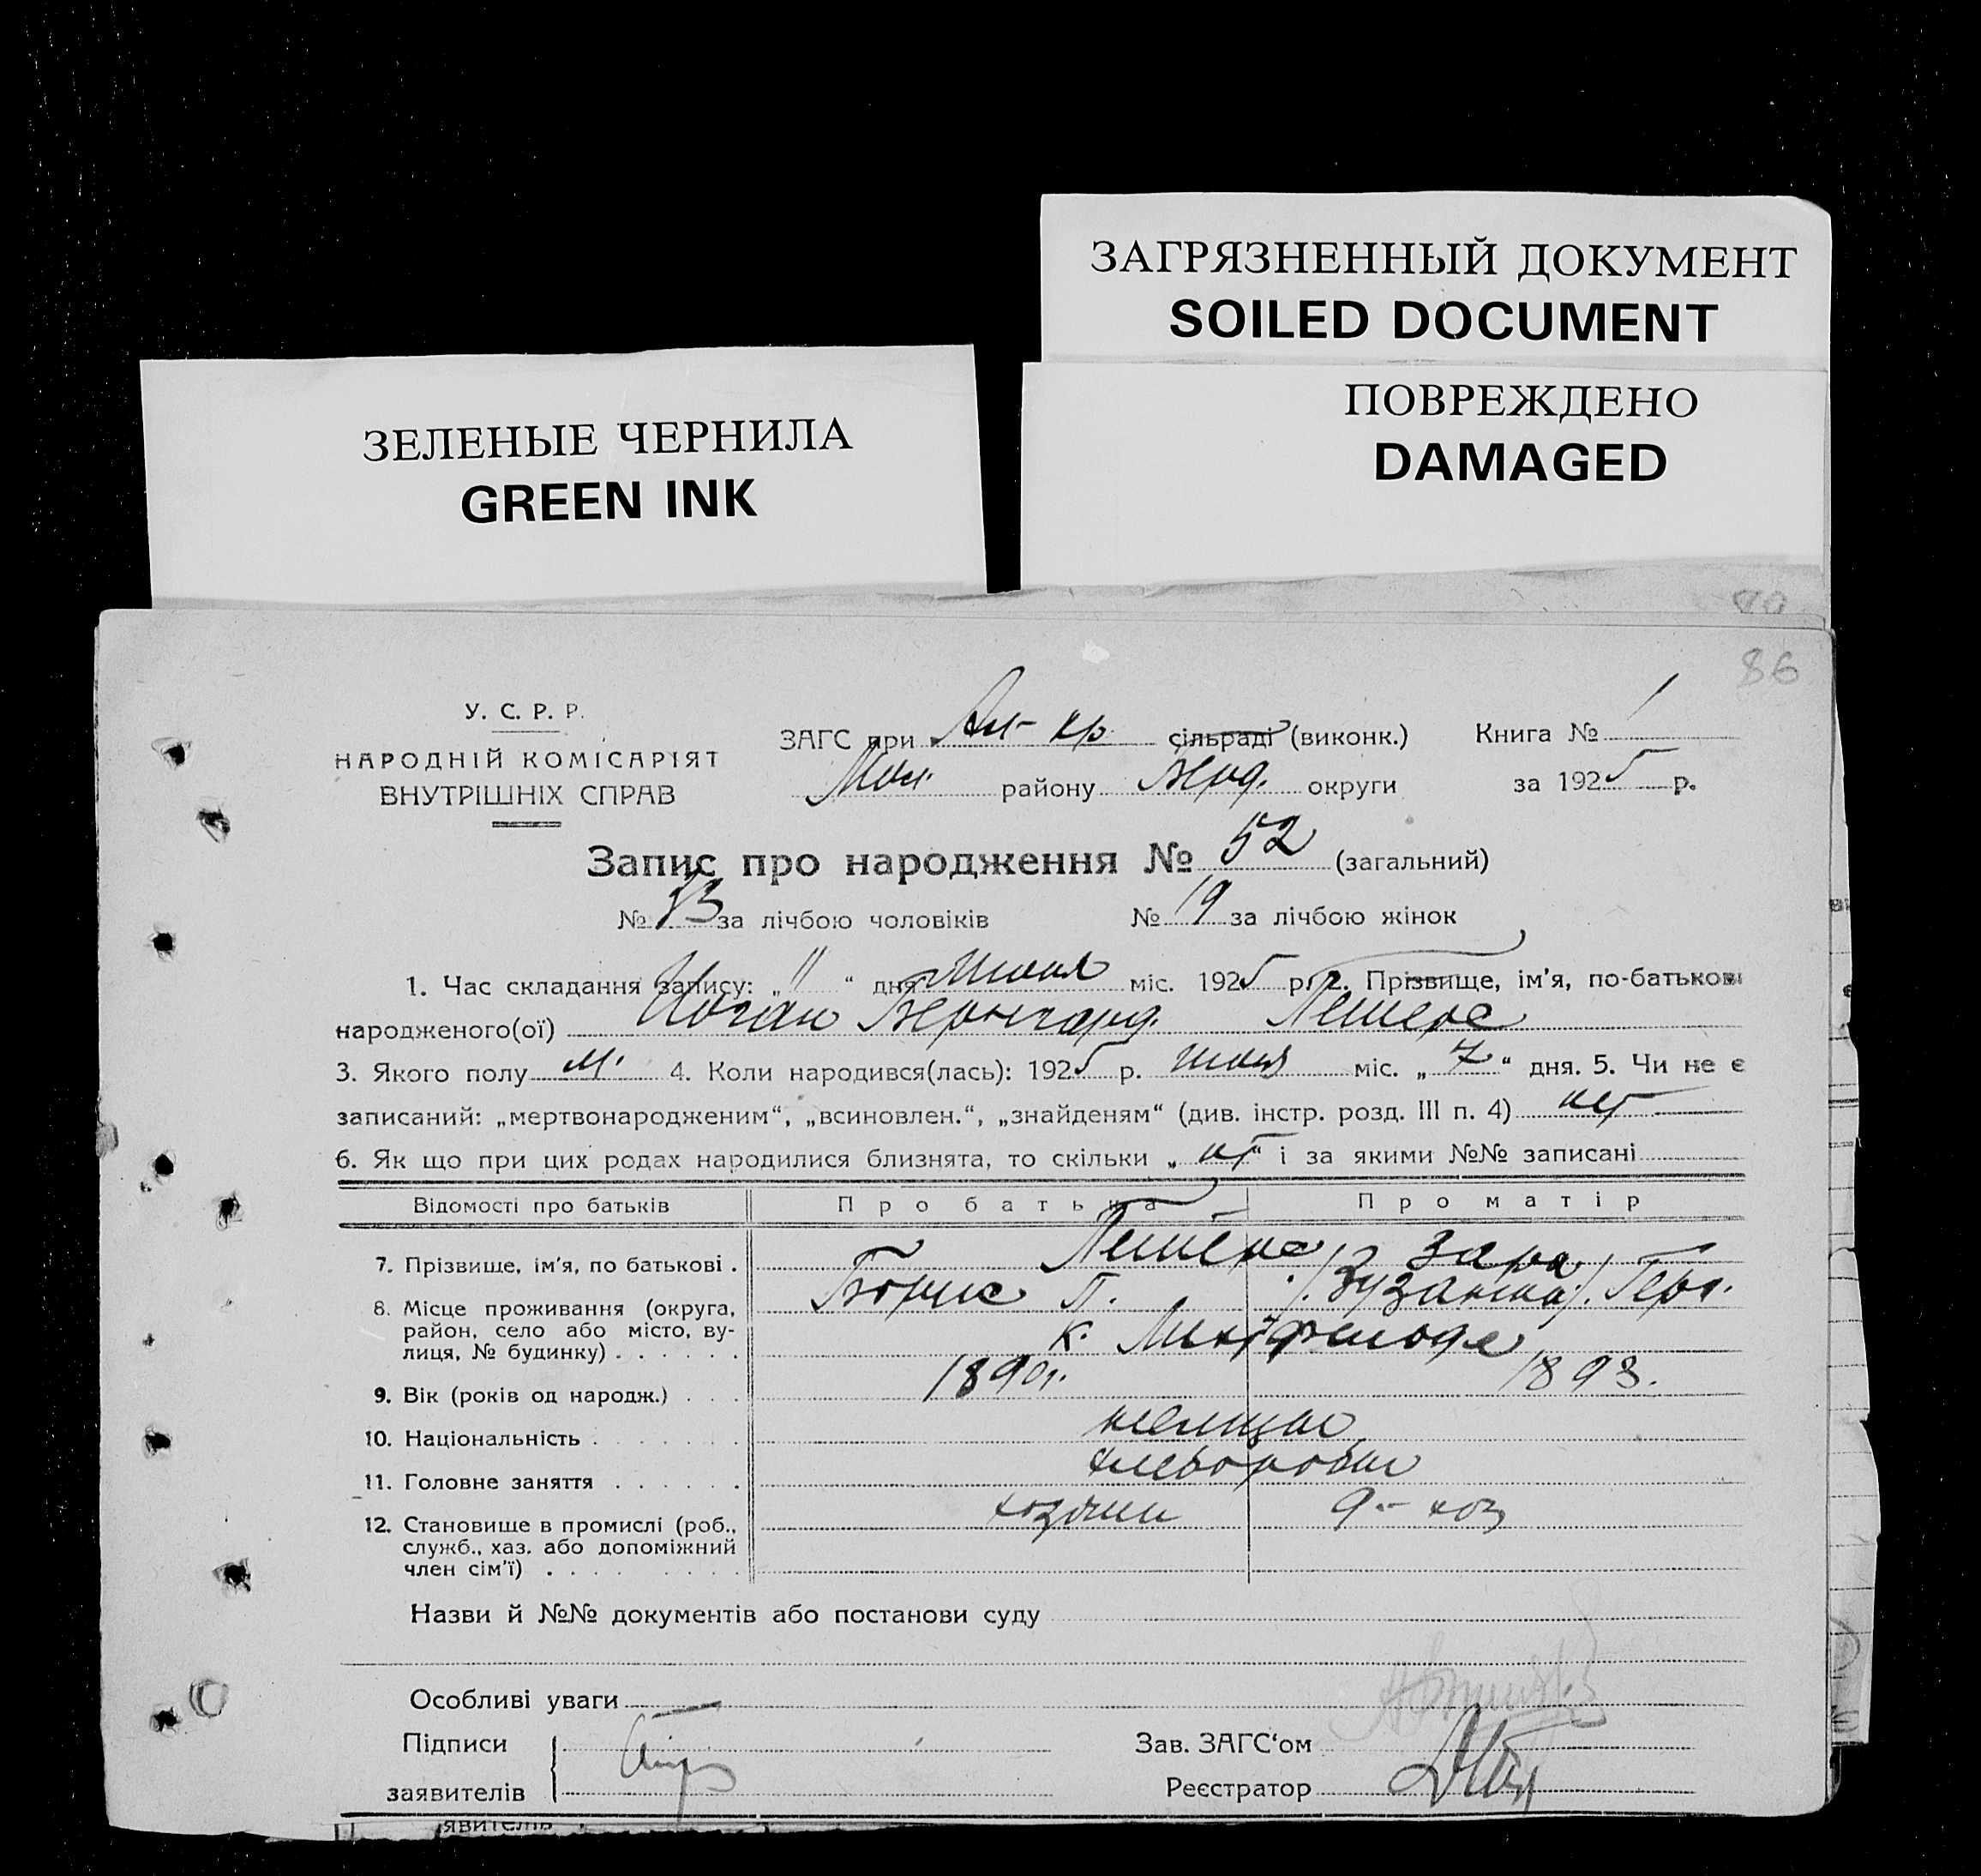 ЗАГРЯЗНЕННЫЙ ДОКУМЕНТ
SOILED DOCUMENT
ПОВРЕЖДЕНО
DAMAGED
ЗЕЛЕНЫЕ ЧЕРНИЛА
GREEN INK
86
У. С. Р. Р.
НАРОДНІЙ КОМІСАРІЯТ
ВНУТРІШНІХ СПРАВ
ЗАГС при сільраді (виконк.) Книга № 1
Мол. району Берд. округи за 1925 р.
Запис про народження № 52 (загальний)
№ 33 за лічбою чоловіків № 19 за лічбою жінок
1. Час складання запису: „11“ дня міс. 1925 р. 2. Прізвище, ім'я, по-батькові
народженого(ої) Иоган Бернгард. Петерс
3. Якого полу м. 4. Коли народився(лась): 1925 р. міс. „7“ дня. 5. Чи не є
записаний: „мертвонародженим“, „всиновлен.“, „знайденям“ (див. інстр. розд. III п. 4) нет
6. Як що при цих родах народилися близнята, то скільки „нет“ і за якими №№ записані
Відомості про батьків Про батька Про матір
7. Прізвище, ім'я, по батькові . Петерс Зара
Борис П. (Зузанна). Герг.
8. Місце проживання (округа,
район, село або місто, ву-
лиця, № будинку) . . . . . . к.
9. Вік (років од народж.) . . . 1890г. 1893.
10. Національність . . . . . . . немцы
11. Головне заняття . . . . . . хлеборобы
12. Становище в промислі (роб.,
служб., хаз. або допоміжний
член сім'ї) . . . . . . . . . хозяин
Назви й №№ документів або постанови суду
Особливі уваги —
Підписи
заявителів
Зав. ЗАГС‘ом
Реєстратор